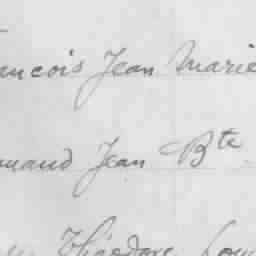 ancois Jean Marie
Jean Bte
Théodore Lou